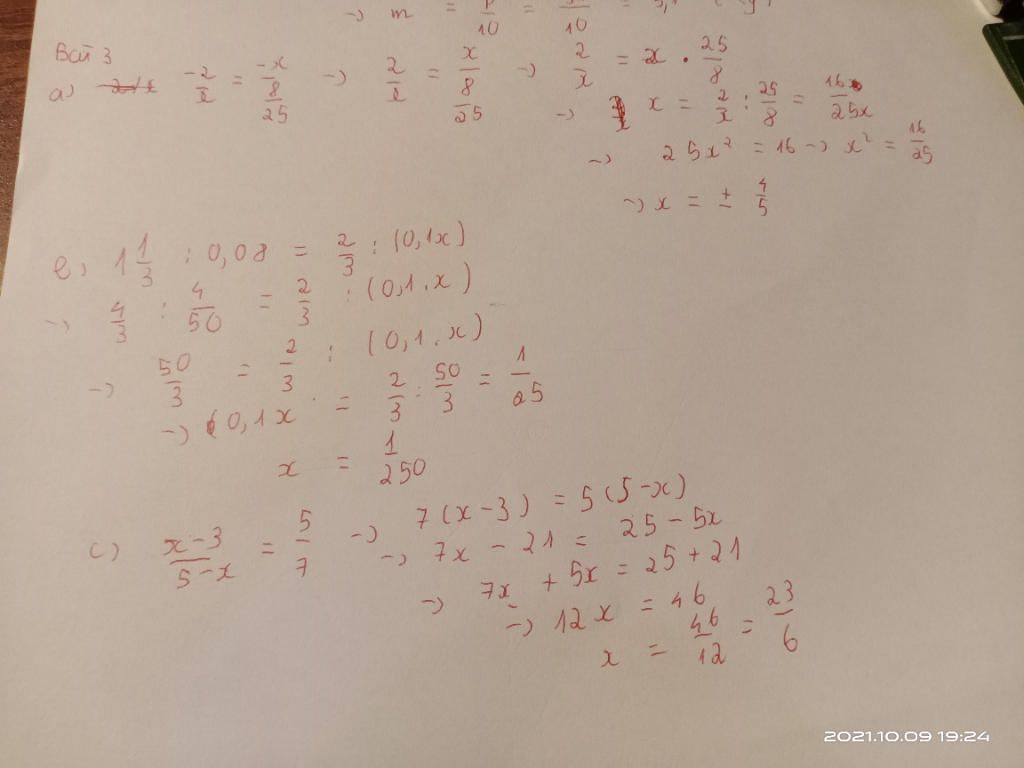 → m = P/10 = /10 =
Bài 3
a) -2/x = -x/(8/25) → 2/x = x/(8/25) → 2/x = x . 25/8
→ x = 2/x : 25/8 = 16/25x
→ 25x² = 16 → x² = 16/25
→ x = ± 4/5
b) 1 1/3 : 0,08 = 2/3 : (0,1x)
→ 4/3 : 4/50 = 2/3 : (0,1.x)
→ 50/3 = 2/3 : (0,1.x)
→ 0,1x = 2/3 : 50/3 = 1/25
x = 1/250
c) x-3/5-x = 5/7 → 7(x-3) = 5(5-x)
→ 7x - 21 = 25 - 5x
→ 7x + 5x = 25 + 21
→ 12x = 46
x = 46/12 = 23/6
2021.10.09 19:24